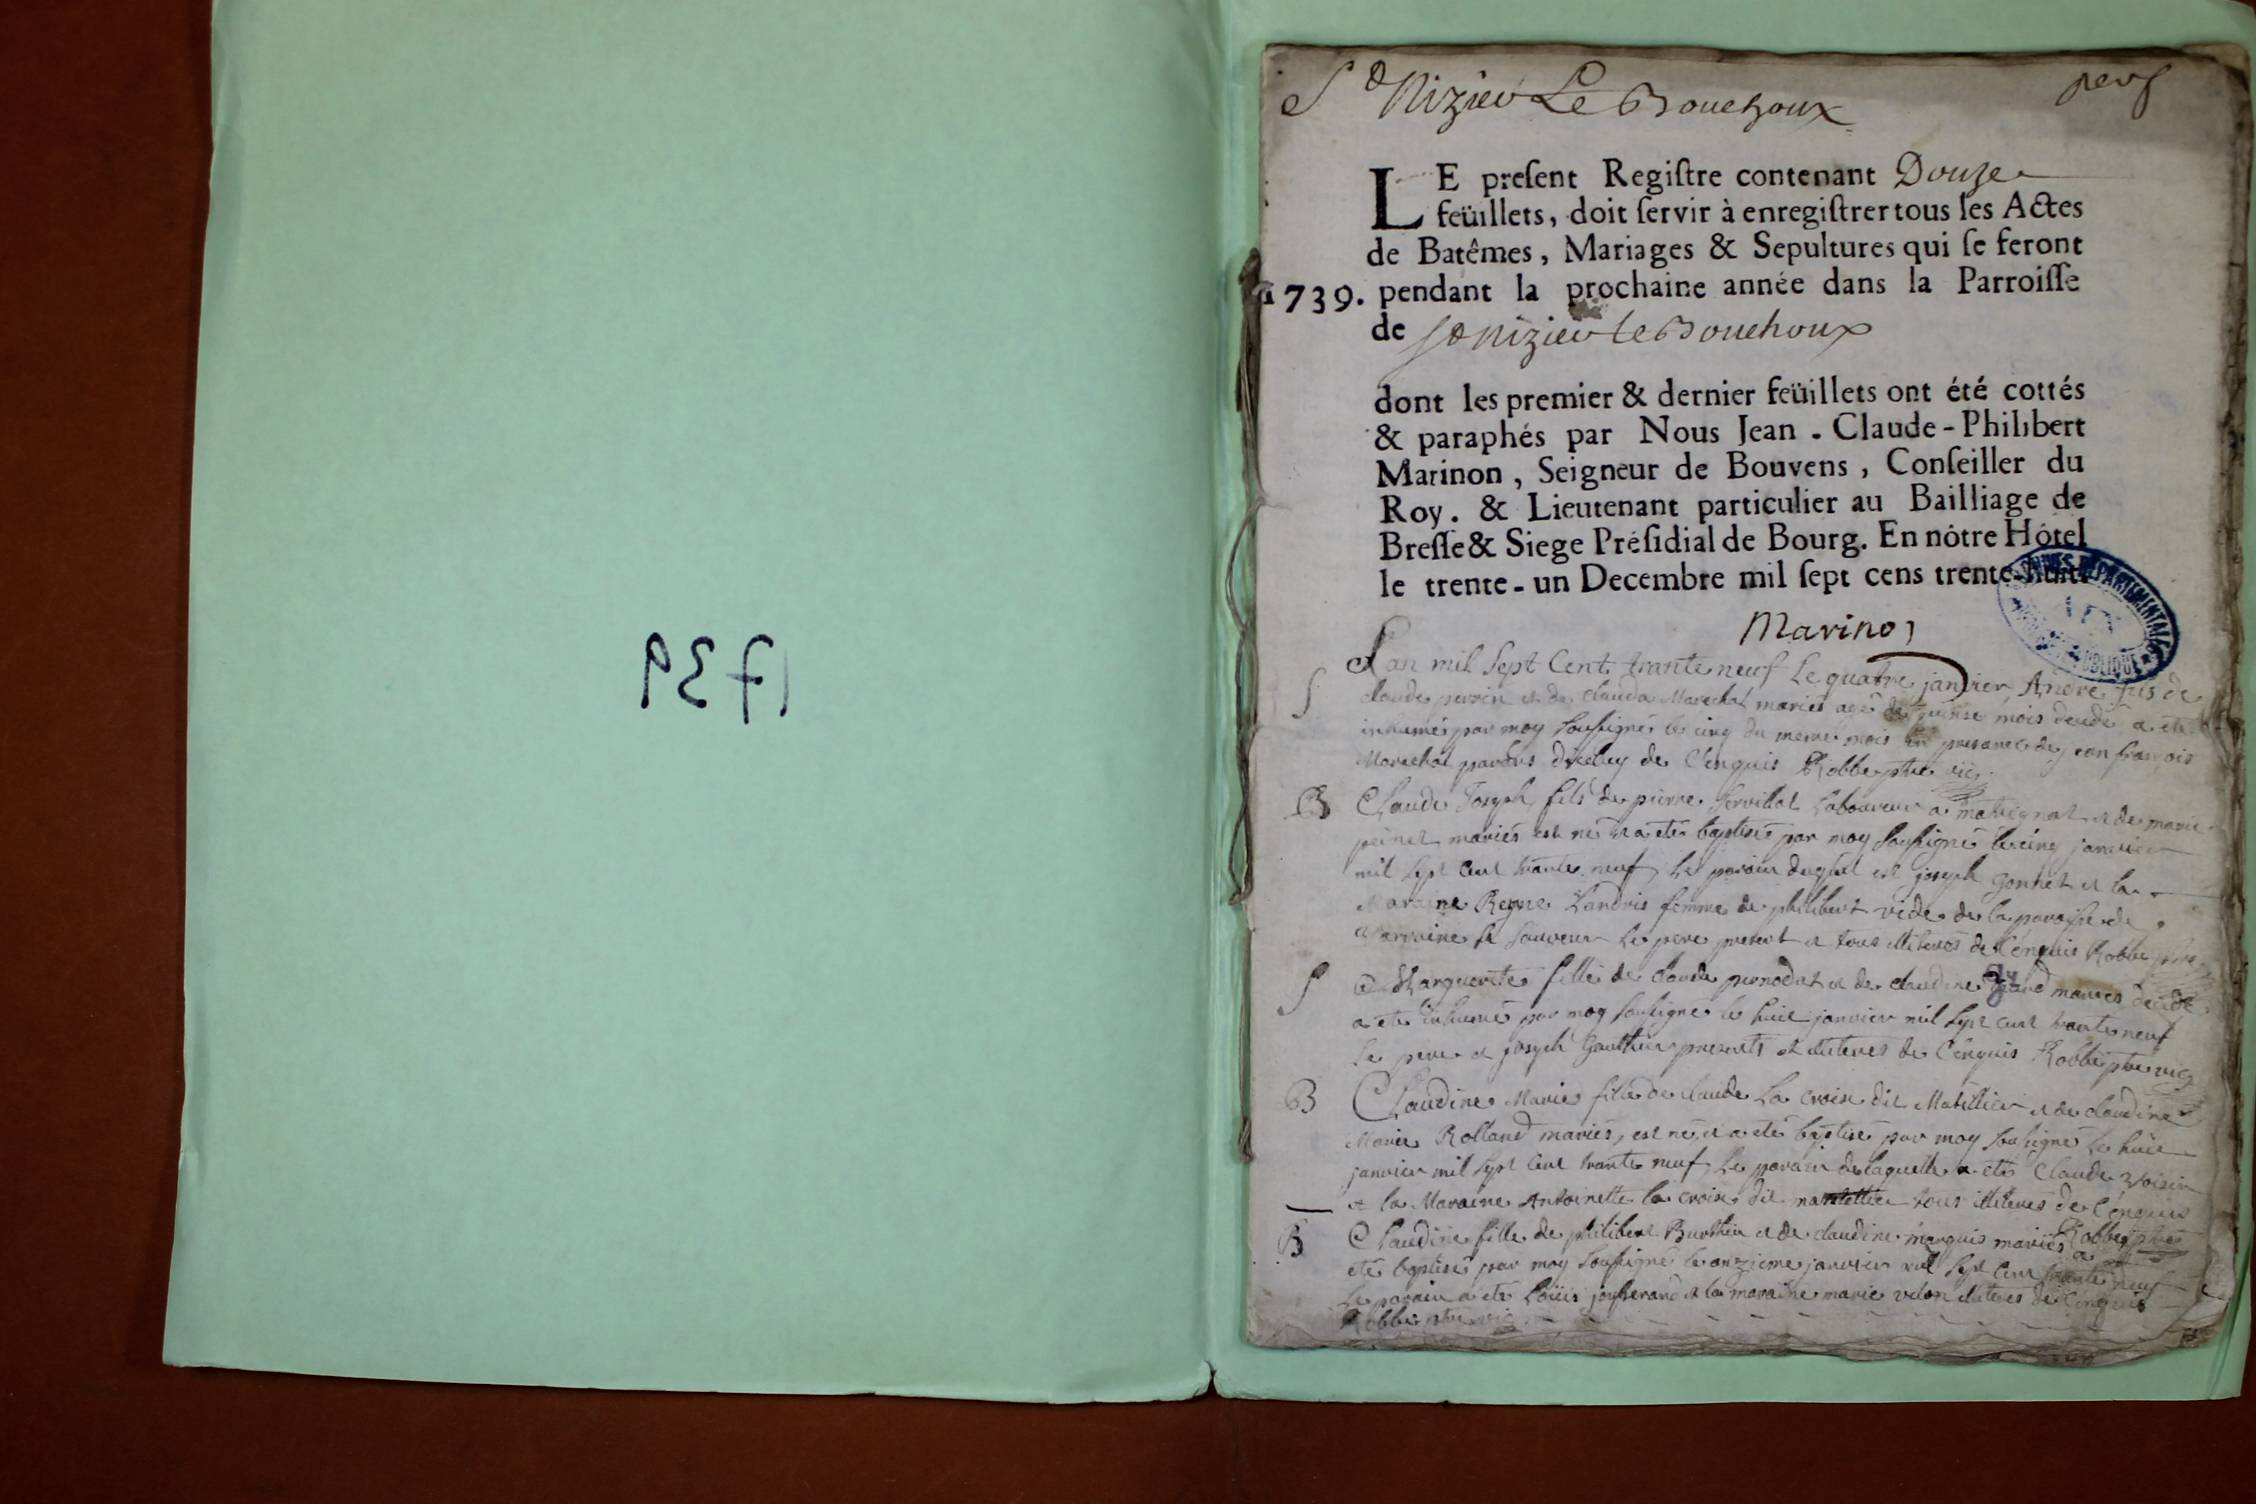 1739
St Nizier Le Bouchoux
LE preſent Regiſtre contenant Douze
feüillets, doit ſervir à enregiſtrer tous les Actes
de Batêmes, Mariages & Sepultures qui ſe feront
1739. pendant la prochaine année dans la Parroiſſe
de St Nizier le Bouchoux
dont les premier & dernier feüillets ont été cottés
& paraphés par Nous Jean - Claude - Philibert
Marinon, Seigneur de Bouvens, Conſeiller du
Roy. & Lieutenant particulier au Bailliage de
Breſſe & Siege Préſidial de Bourg. En nôtre Hôtel
le trente - un Decembre mil ſept cens trente-huit
Marinon
ARCHIVES DEPARTEMENTALES
S L'an mil sept Cent trante neuf Le quatre janvier André fils de
claude perrin et de clauda Marechal mariés agé de quinse mois decedé a eté
inhumés par moy soussignés le cinq du meme mois en presance de jean françois
Marechal de Cenquis Robbe ptre vic
B Claude Joseph fils de pierre Servillat Laboureur a et de marie
mariés est né et a eté baptisé par moy soussigné le cinq janvier
mil sept cent trante neuf, Le parain duquel est joseph gonnet et la
Maraine Reyne Landris femme de philibert vede de la paroisse de
Le pere present et tous illiteres de Cenquis Robbe ptre
S Marguerite fille de claude pernodat et de claudine mariés decedé
a eté inhumé par moy soussigné le huit janvier mil sept cent trante neuf
le pere et joseph Gauthier presents et illiteres de Cenquis Robbe ptre vic
B Claudine Marie fille de claude La croix dit et de claudine
Marie Rolland mariés, est né, et a eté baptisé par moy soussigné le huit
janvier mil sept cent trante neuf, Le parain de laquelle a eté Claude Voisin
et la Maraine Antoinette la croix dit tous illiteres de Cenquis
Robbe ptre
B Claudine fille de philibert Burthier et de claudine marquis mariés a
eté baptisé par moy soussigné le onzieme janvier mil sept cent trante neuf
Le parain a eté Loüis jousserand et la maraine marie velon illiteres de Cenquis
Robbe ptre vic